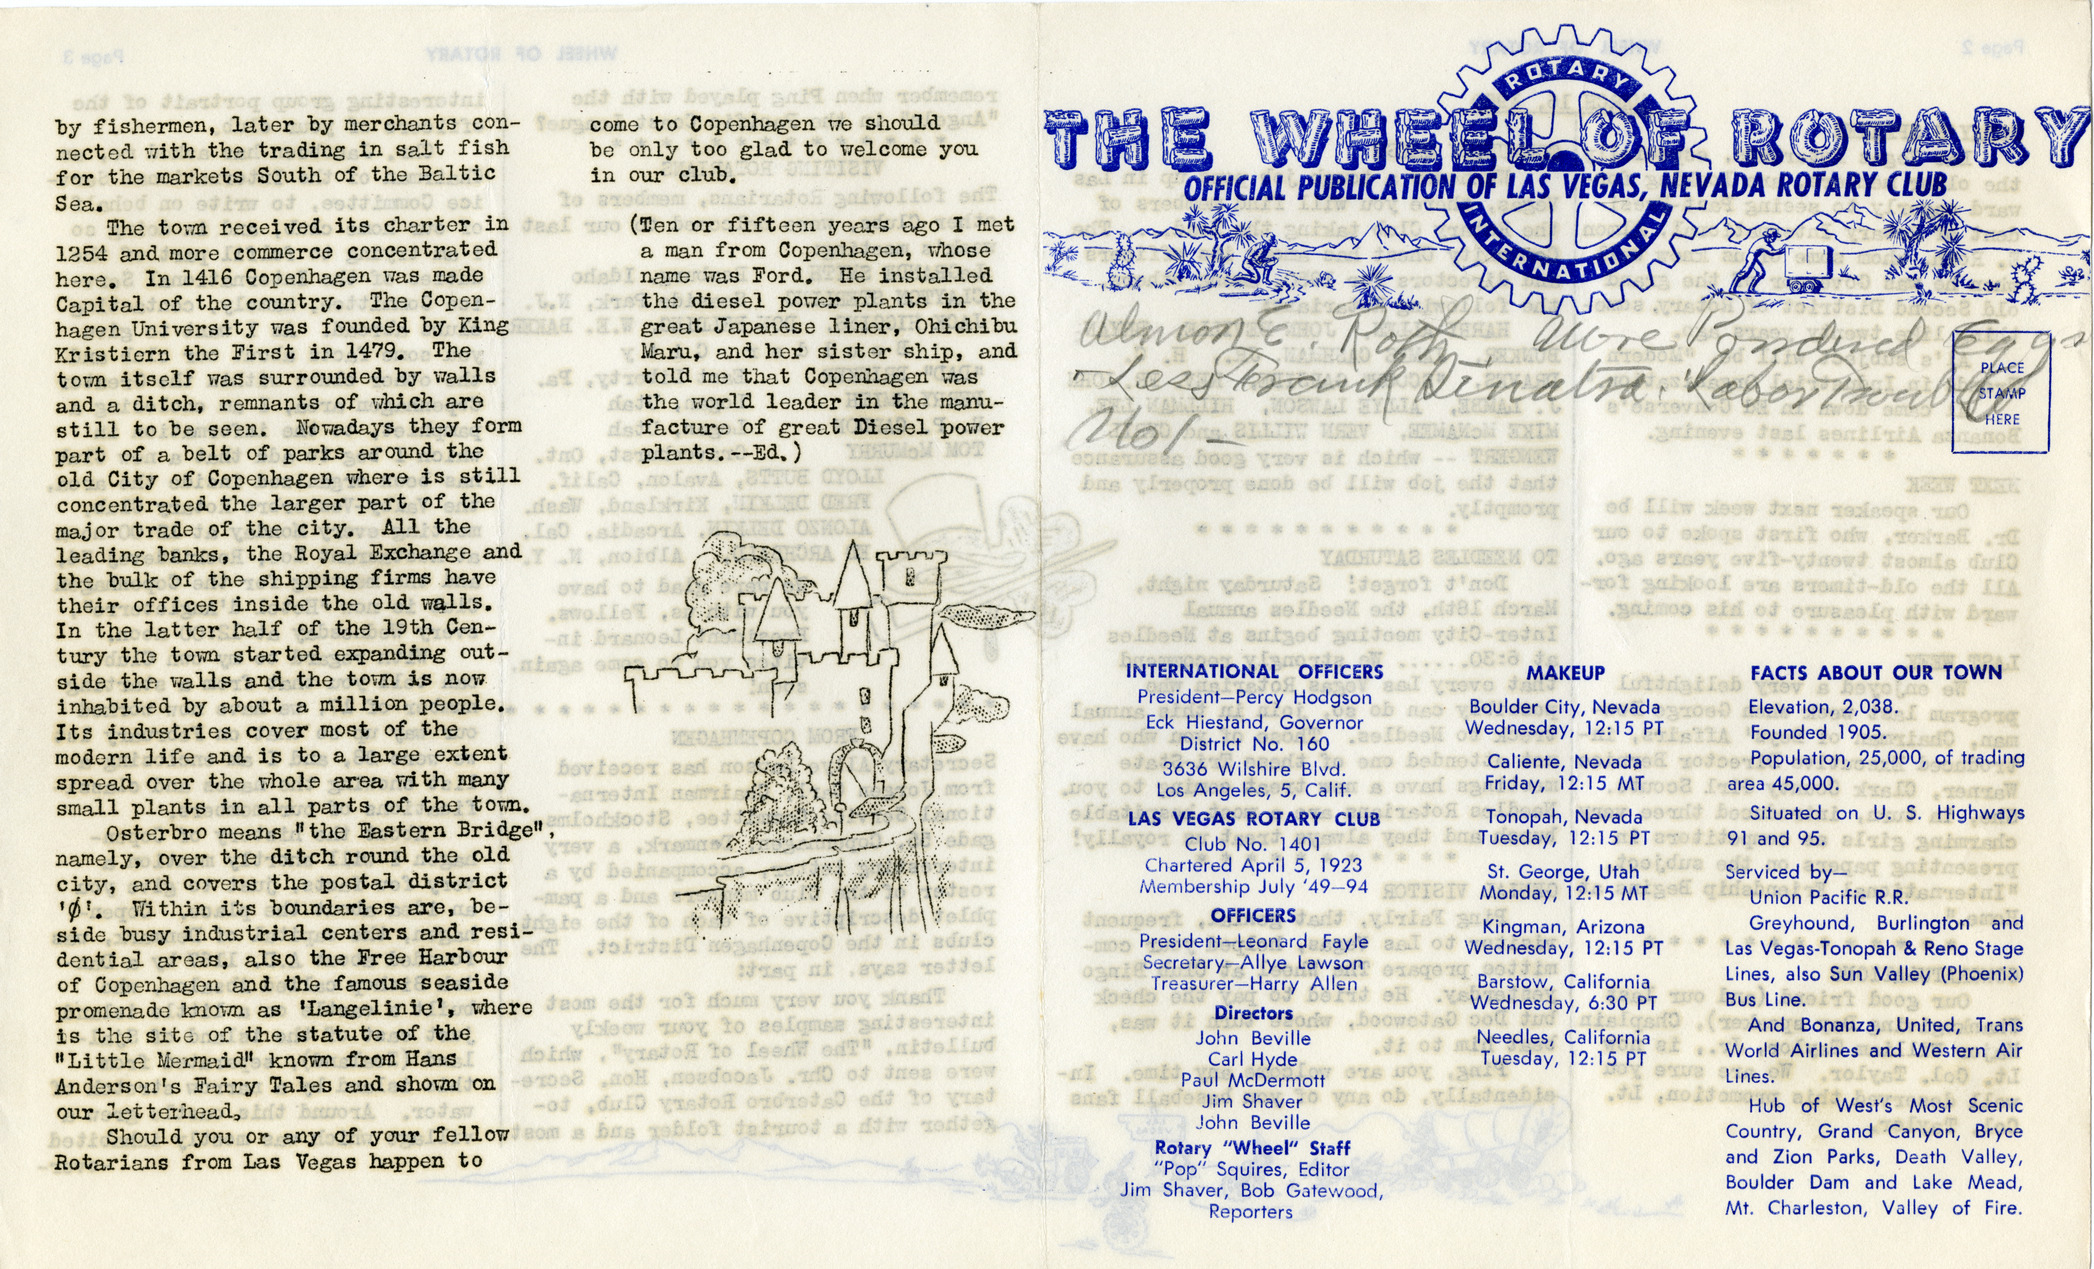 by fishermen, later by merchants con-
nected with the trading in salt fish
for the markets South of the Baltic
Sea.
The town received its charter in
1254 and more commerce concentrated
here. In 1416 Copenhagen was made
Capital of the country. The Copen-
hagen University was founded by King
Kristiern the First in 1479. The
town itself was surrounded by walls
and a ditch, remnants of which are
still to be seen. Nowadays they form
part of a belt of parks around the
old City of Copenhagen where is still
concentrated the larger part of the
major trade of the city. All the
leading banks, the Royal Exchange and
the bulk of the shipping firms have
their offices inside the old walls.
In the latter half of the 19th Cen-
tury the town started expanding out-
side the walls and the town is now
inhabited by about a million people.
Its industries cover most of the
modern life and is to a large extent
spread over the whole area with many
small plants in all parts of the town.
Osterbro means "the Eastern Bridge",
namely, over the ditch round the old
city, and covers the postal district
'Ø'. Within its boundaries are, be-
side busy industrial centers and resi-
dential areas, also the Free Harbour
of Copenhagen and the famous seaside
promenade known as 'Langelinie', where
is the site of the statute of the
"Little Mermaid" known from Hans
Anderson's Fairy Tales and shown on
our letterhead.
Should you or any of your fellow
Rotarians from Las Vegas happen to
come to Copenhagen we should
be only too glad to welcome you
in our club.
(Ten or fifteen years ago I met
a man from Copenhagen, whose
name was Ford. He installed
the diesel power plants in the
great Japanese liner, Chichibu
Maru, and her sister ship, and
told me that Copenhagen was
the world leader in the manu-
facture of great Diesel power
plants.--Ed.)
ROTARY
THE WHEEL OF ROTARY
OFFICIAL PUBLICATION OF LAS VEGAS, NEVADA ROTARY CLUB
INTERNATIONAL
Almon E. Roth. More Eggs
- Less Frank Sinatra. Labor Trouble
PLACE
STAMP
HERE
INTERNATIONAL OFFICERS
President—Percy Hodgson
Eck Hiestand, Governor
District No. 160
3636 Wilshire Blvd.
Los Angeles, 5, Calif.
LAS VEGAS ROTARY CLUB
Club No. 1401
Chartered April 5, 1923
Membership July '49—94
OFFICERS
President—Leonard Fayle
Secretary—Allye Lawson
Treasurer—Harry Allen
Directors
John Beville
Carl Hyde
Paul McDermott
Jim Shaver
John Beville
Rotary "Wheel" Staff
"Pop" Squires, Editor
Jim Shaver, Bob Gatewood,
Reporters
MAKEUP
Boulder City, Nevada
Wednesday, 12:15 PT
Caliente, Nevada
Friday, 12:15 MT
Tonopah, Nevada
Tuesday, 12:15 PT
St. George, Utah
Monday, 12:15 MT
Kingman, Arizona
Wednesday, 12:15 PT
Barstow, California
Wednesday, 6:30 PT
Needles, California
Tuesday, 12:15 PT
FACTS ABOUT OUR TOWN
Elevation, 2,038.
Founded 1905.
Population, 25,000, of trading
area 45,000.
Situated on U. S. Highways
91 and 95.
Serviced by—
Union Pacific R.R.
Greyhound, Burlington and
Las Vegas-Tonopah & Reno Stage
Lines, also Sun Valley (Phoenix)
Bus Line.
And Bonanza, United, Trans
World Airlines and Western Air
Lines.
Hub of West's Most Scenic
Country, Grand Canyon, Bryce
and Zion Parks, Death Valley,
Boulder Dam and Lake Mead,
Mt. Charleston, Valley of Fire.